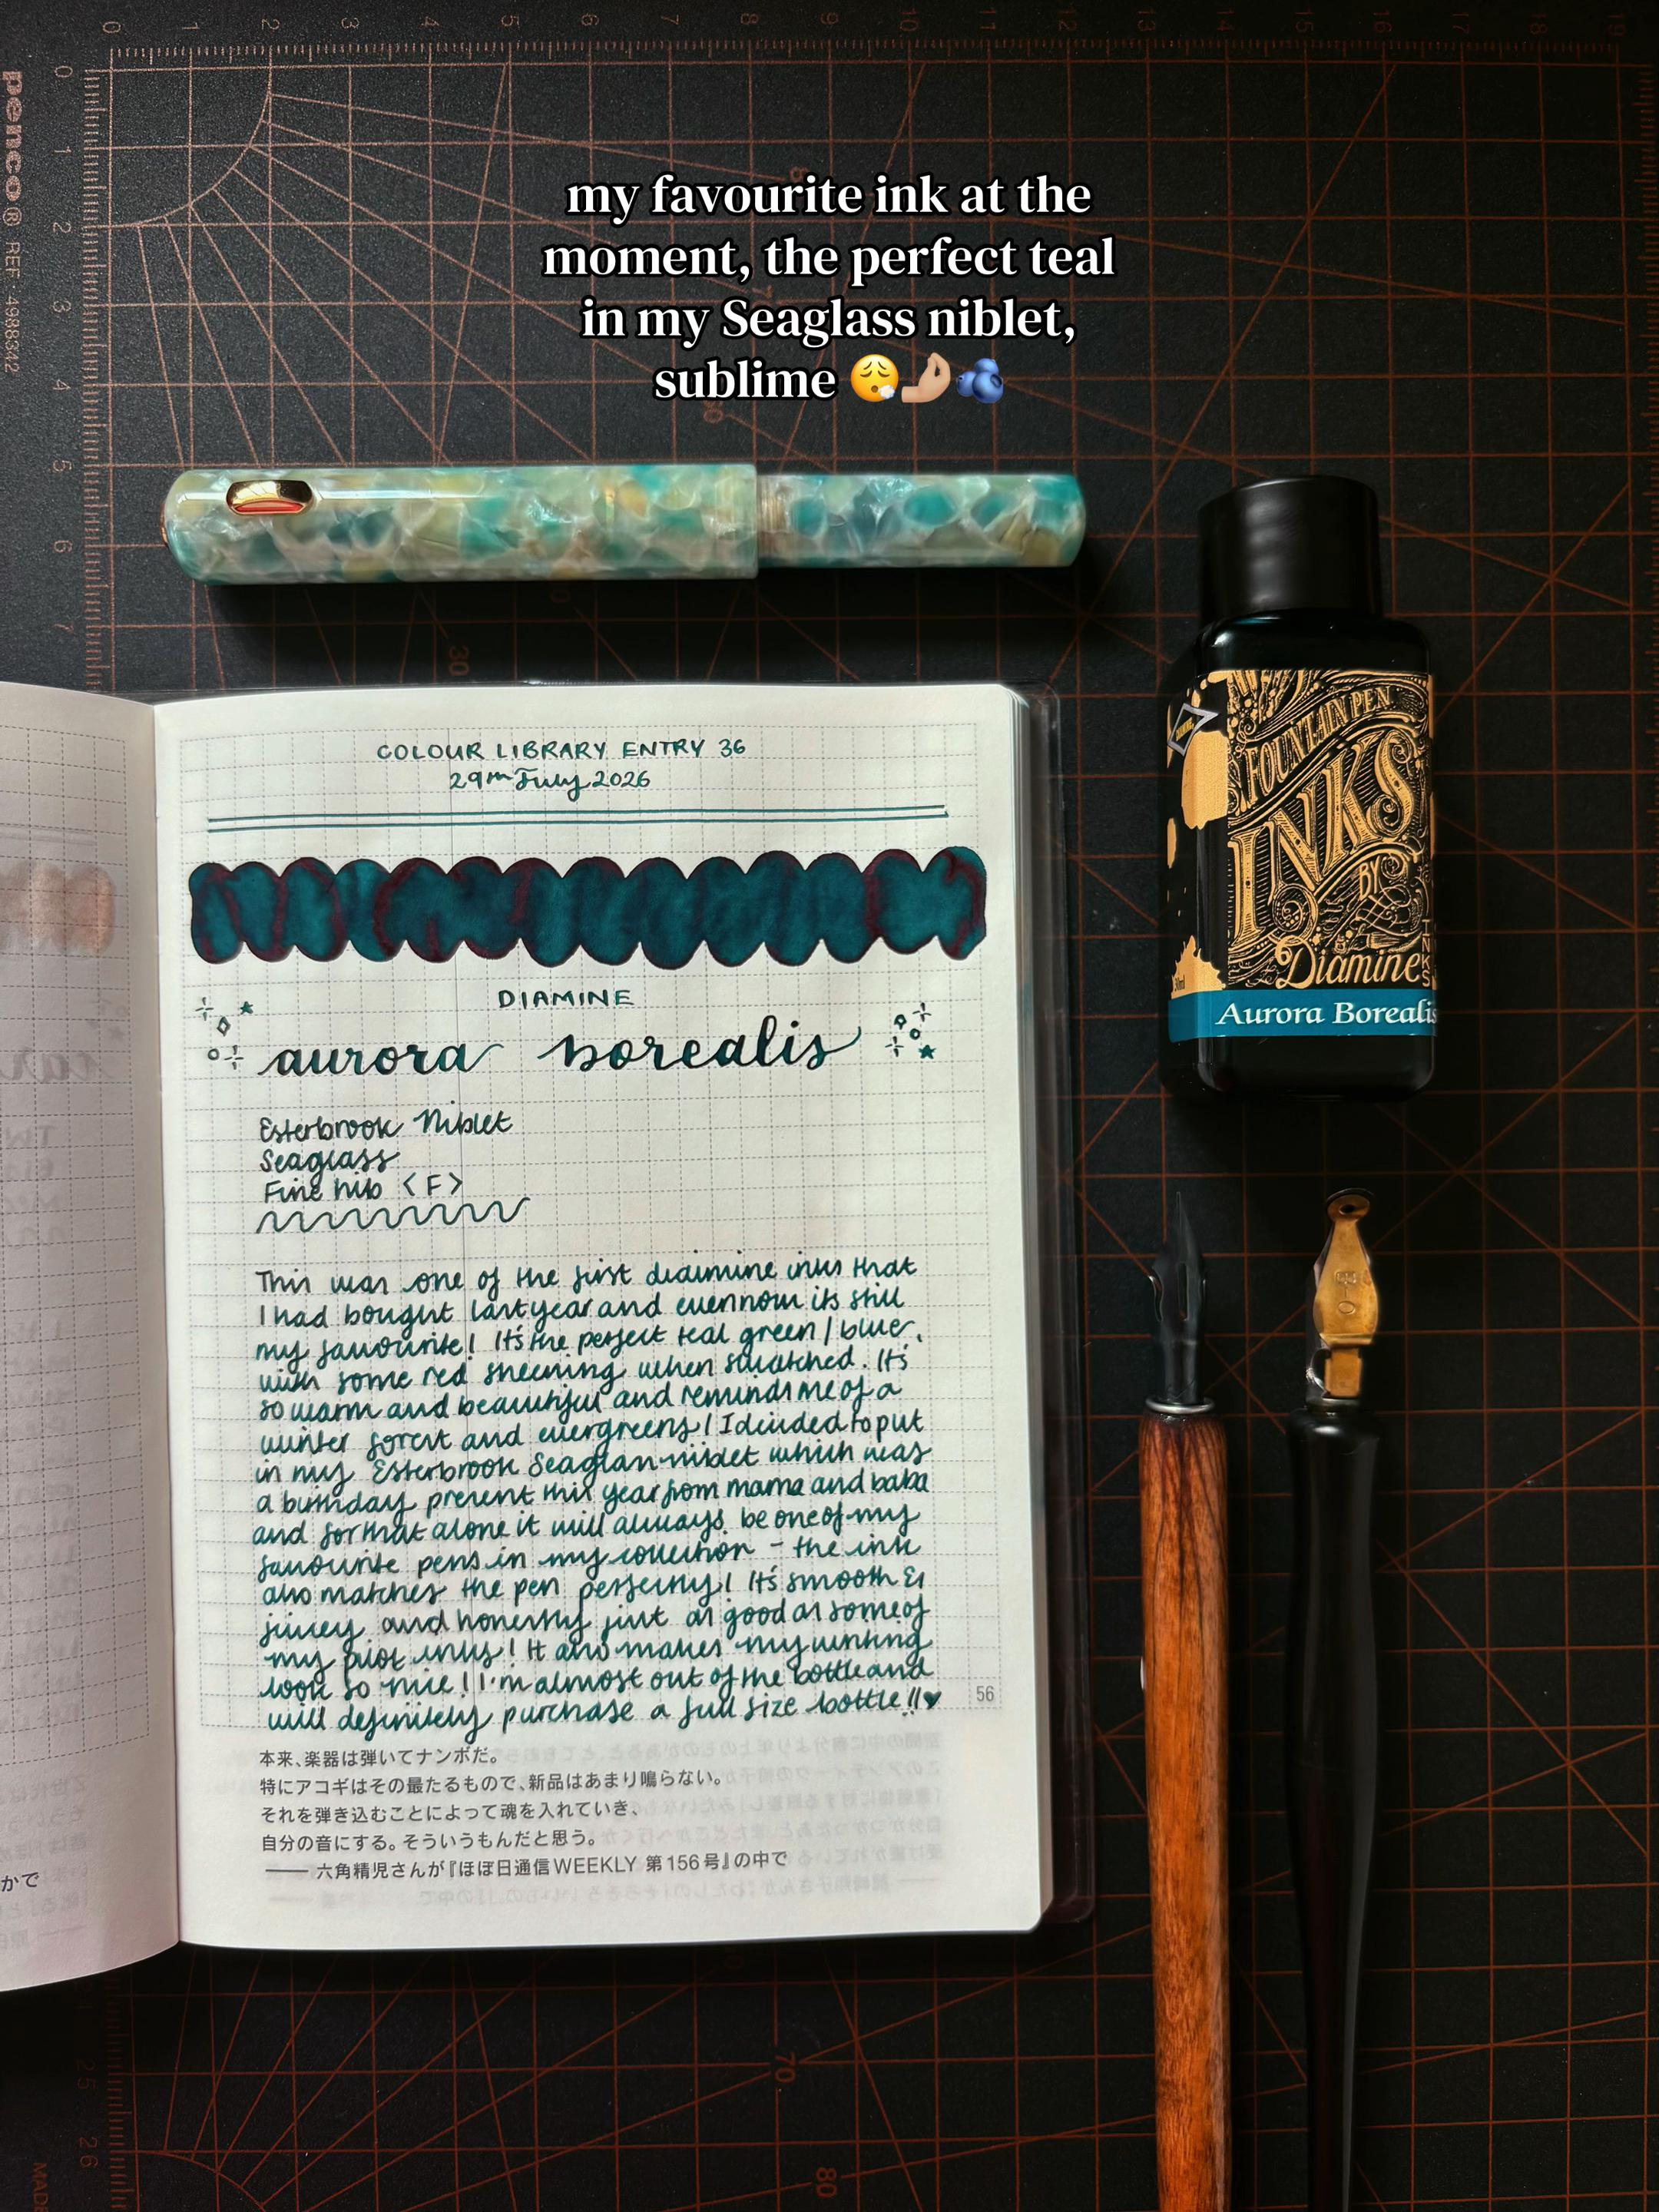 my favourite ink at the
moment, the perfect teal
in my Seaglass niblet,
sublime 😮‍💨🤌🏼🫐
0 1 2 3 4 5 6 7 8 9 10 11 12 13 14 15 16 17 18 19
0
1
2
3
4
5
6
7
penco® REF: 4988342
30
FOUNTAIN PEN
INKS
BY
Diamine
INKS
30ml
Aurora Borealis
COLOUR LIBRARY ENTRY 36
29th July 2026
DIAMINE
aurora borealis
Esterbrook Niblet
Seaglass
Fine nib <F>
This was one of the first diaimine inks that
I had bought last year and even now its still
my favourite! It's the perfect teal green / blue,
with some red sheening when swatched. It's
so warm and beautiful and reminds me of a
winter forest and evergreens! I decided to put
in my Esterbrook Seaglass niblet which was
a birthday present this year from mama and baba
and for that alone it will always be one of my
favourite pens in my collection - the ink
also matches the pen perfectly! It's smooth &
juicy and honestly just as good as some of
my pilot inks! It also makes my writing
look so nice! I'm almost out of the bottle and
will definitely purchase a full size bottle!!♥
56
本来、楽器は弾いてナンボだ。
特にアコギはその最たるもので、新品はあまり鳴らない。
それを弾き込むことによって魂を入れていき、
自分の音にする。そういうもんだと思う。
―― 六角精児さんが『ほぼ日通信WEEKLY 第156号』の中で
かで
70
80
25
26
MADE